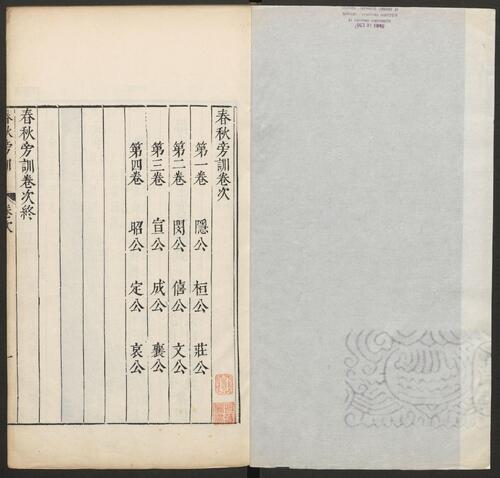 春秋旁訓卷次
第一卷 隱公 桓公 莊公
第二卷 閔公 僖公 文公
第三卷 宣公 成公 襄公
第四卷 昭公 定公 哀公
春秋旁訓卷次終
春秋旁訓 卷次 一
OCT 31 1940